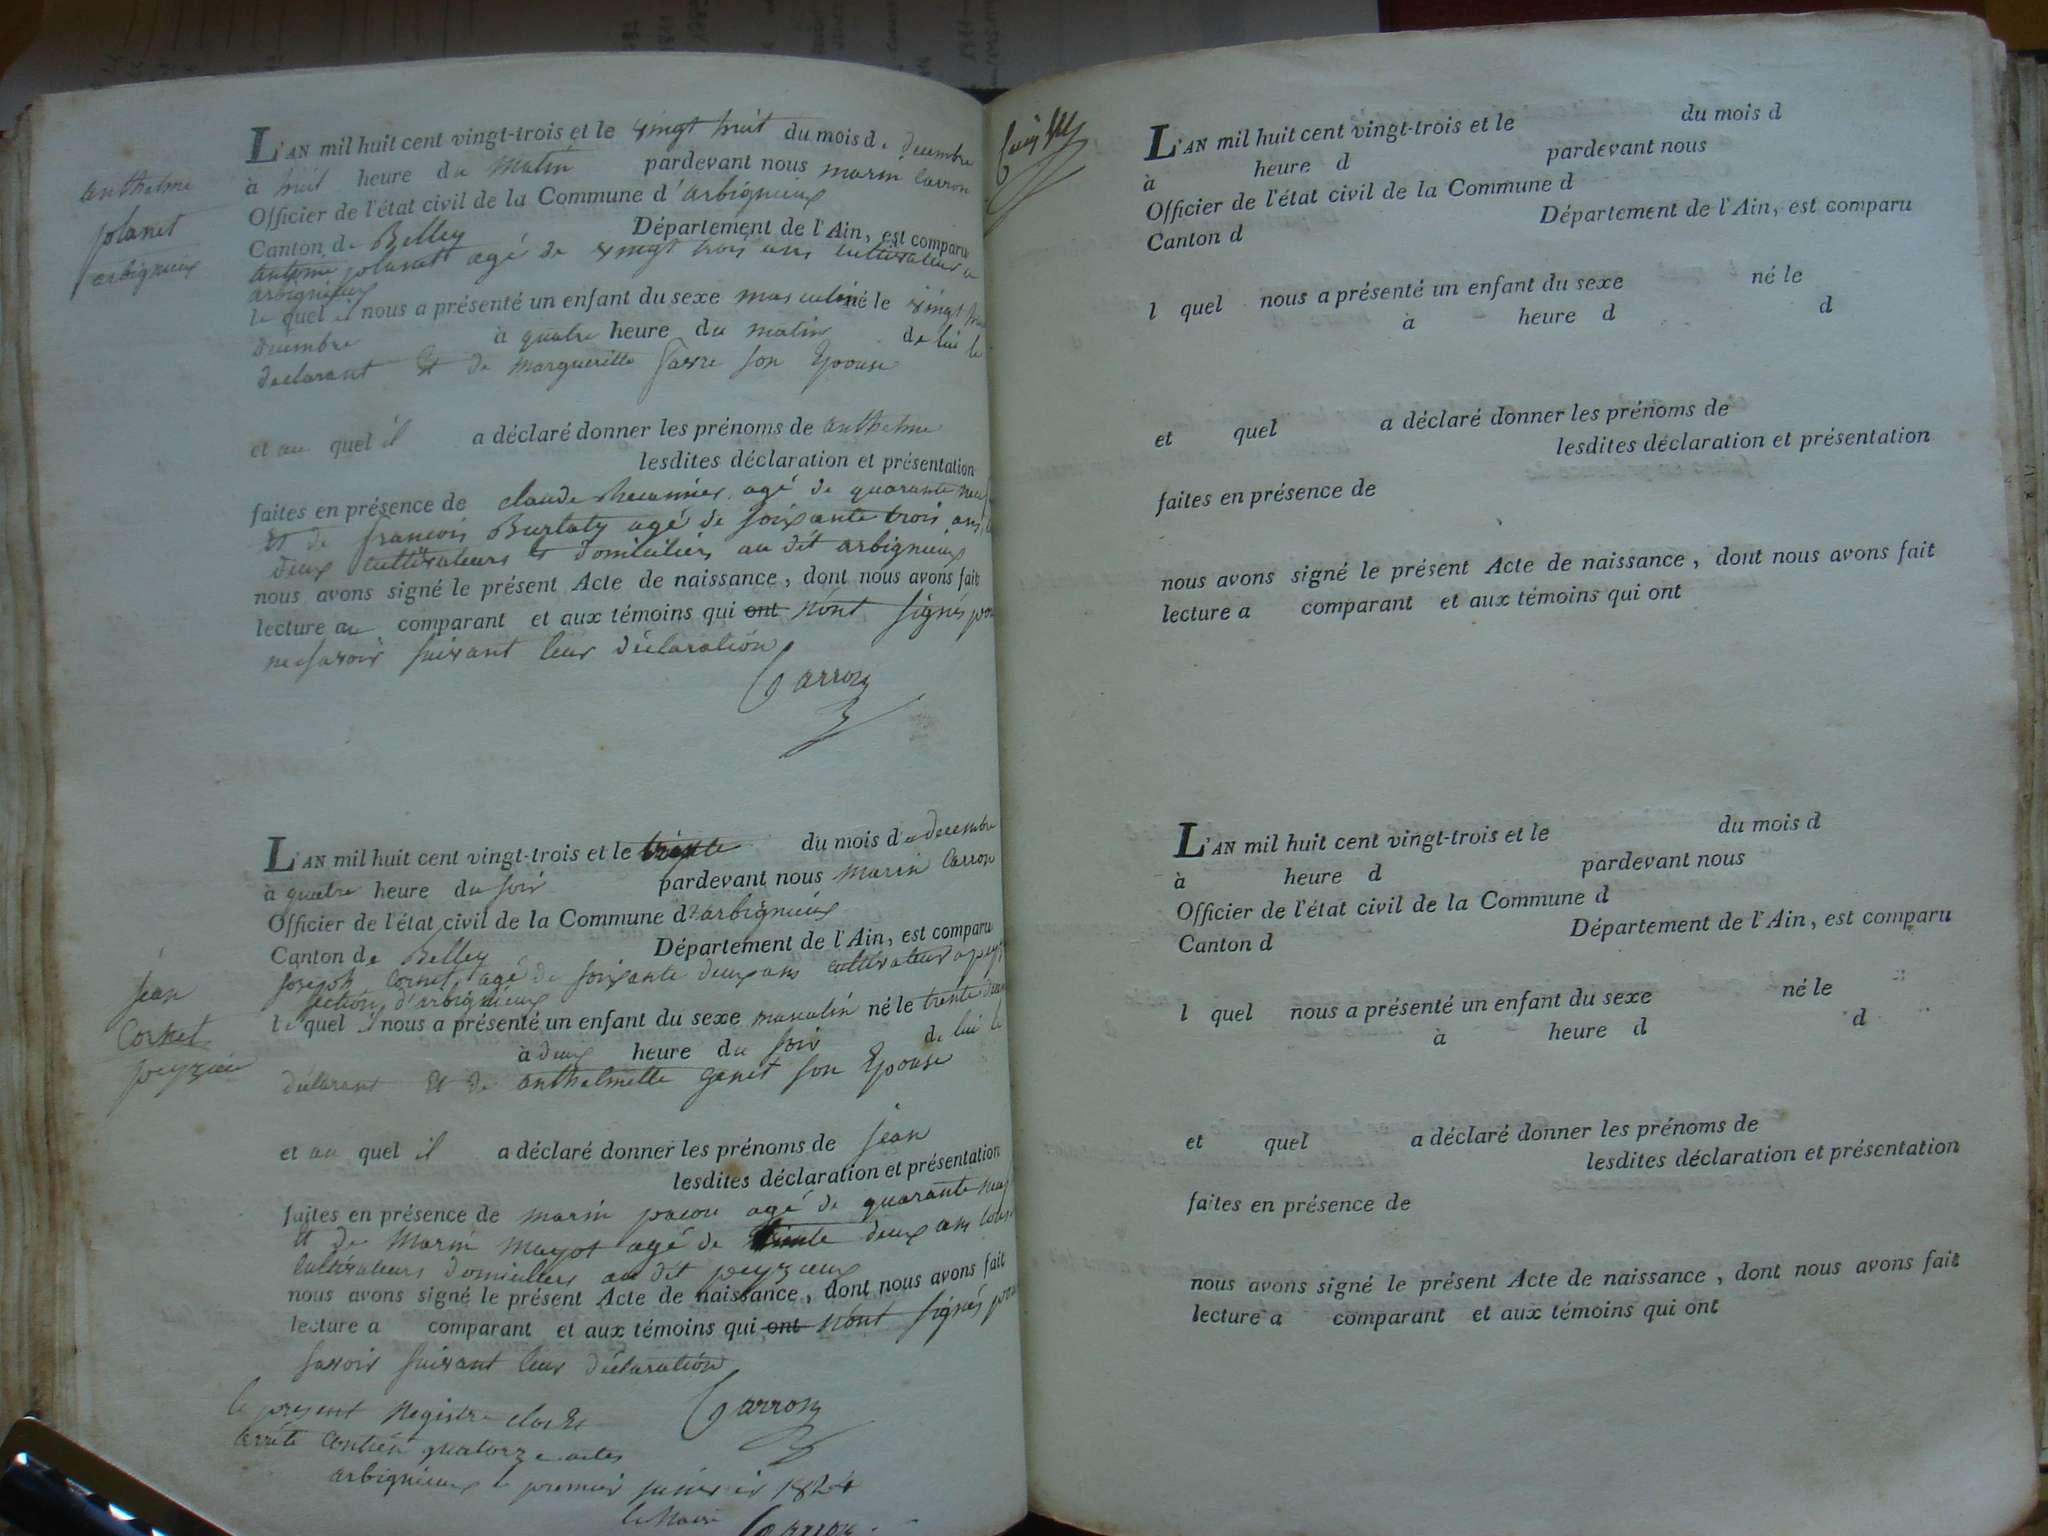 L'AN mil huit cent vingt-trois et le vingt huit du mois de decembre
à huit heure du matin pardevant nous marin Carron
Officier de l'état civil de la Commune d'arbignieux
Canton de Belley Département de l'Ain, est comparu
antoine agé de vingt trois ans cultivateur a
arbignieux
le quel il nous a présenté un enfant du sexe masculin né le vingt
decembre à quatre heure du matin de lui le
declarant Et de margueritte favre son Epouse
et au quel il a déclaré donner les prénoms de anthelme
lesdites déclaration et présentation
faites en présence de claude agé de quarante neuf
Et de francois Burlaty agé de soixante trois ans
deux cultivateurs domiciliés au dit arbignieux
nous avons signé le présent Acte de naissance, dont nous avons fait
lecture au comparant et aux témoins qui ont n'ont signés pour
ne savoir suivant leur déclaration
Carron
anthelme
arbignieux
L'AN mil huit cent vingt-trois et le trente du mois de decembre
à quatre heure du soir pardevant nous marin Carron
Officier de l'état civil de la Commune d'arbignieux
Canton de Belley Département de l'Ain, est comparu
joseph Cornet agé de soixante deux ans cultivateur a
section d'arbignieux
le quel il nous a présenté un enfant du sexe masculin né le trente
à deux heure du soir de lui le
déclarant Et de anthelmette genet son Epouse
et au quel il a déclaré donner les prénoms de jean
lesdites déclaration et présentation
faites en présence de marin pacou agé de quarante
Et de Marin mayot agé de trente deux ans tous
cultivateurs domiciliers au dit peyzieux
nous avons signé le présent Acte de naissance, dont nous avons fait
lecture a comparant et aux témoins qui ont n'ont signés pour
savoir suivant leur déclaration
Carron
jean
Cornet
peyzieu
le present Registre clos Et
arrété contien quatorze actes
arbignieux le premier janvier 1824
le Maire Carron
L'AN mil huit cent vingt-trois et le du mois d
à heure d pardevant nous
Officier de l'état civil de la Commune d
Canton d Département de l'Ain, est comparu
l quel nous a présenté un enfant du sexe né le
à heure d d
et quel a déclaré donner les prénoms de
lesdites déclaration et présentation
faites en présence de
nous avons signé le présent Acte de naissance, dont nous avons fait
lecture a comparant et aux témoins qui ont
L'AN mil huit cent vingt-trois et le du mois d
à heure d pardevant nous
Officier de l'état civil de la Commune d
Canton d Département de l'Ain, est comparu
l quel nous a présenté un enfant du sexe né le
à heure d d
et quel a déclaré donner les prénoms de
lesdites déclaration et présentation
faites en présence de
nous avons signé le présent Acte de naissance, dont nous avons fait
lecture a comparant et aux témoins qui ont